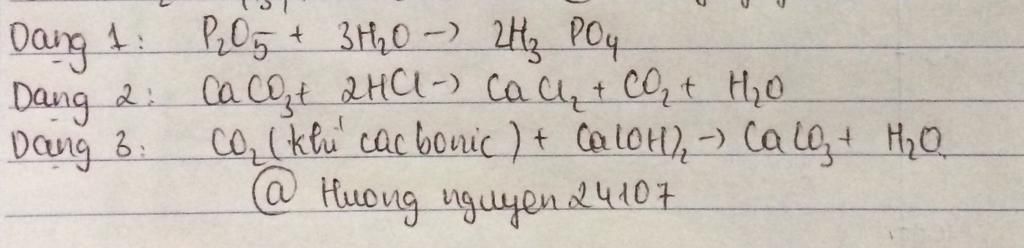 Dạng 1: P₂O₅ + 3H₂O -> 2H₃ PO₄
Dạng 2: CaCO₃ + 2HCl -> CaCl₂ + CO₂ + H₂O
Dạng 3: CO₂ (khí cacbonic) + Ca(OH)₂ -> CaCO₃ + H₂O
@ Huong nguyen 24107